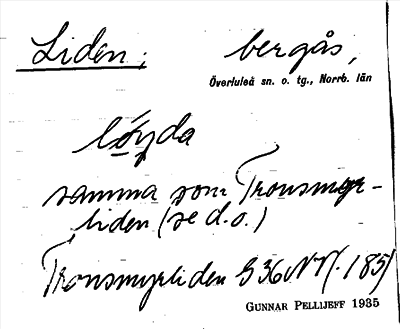 Liden, bergås,
Överluleå sn. o. tg., Norrb. län
löyda
samma som Transmyr-
liden (se d.o.)
Transmyrliden G 36 NV/. 185/
GUNNAR PELLIJEFF 1935